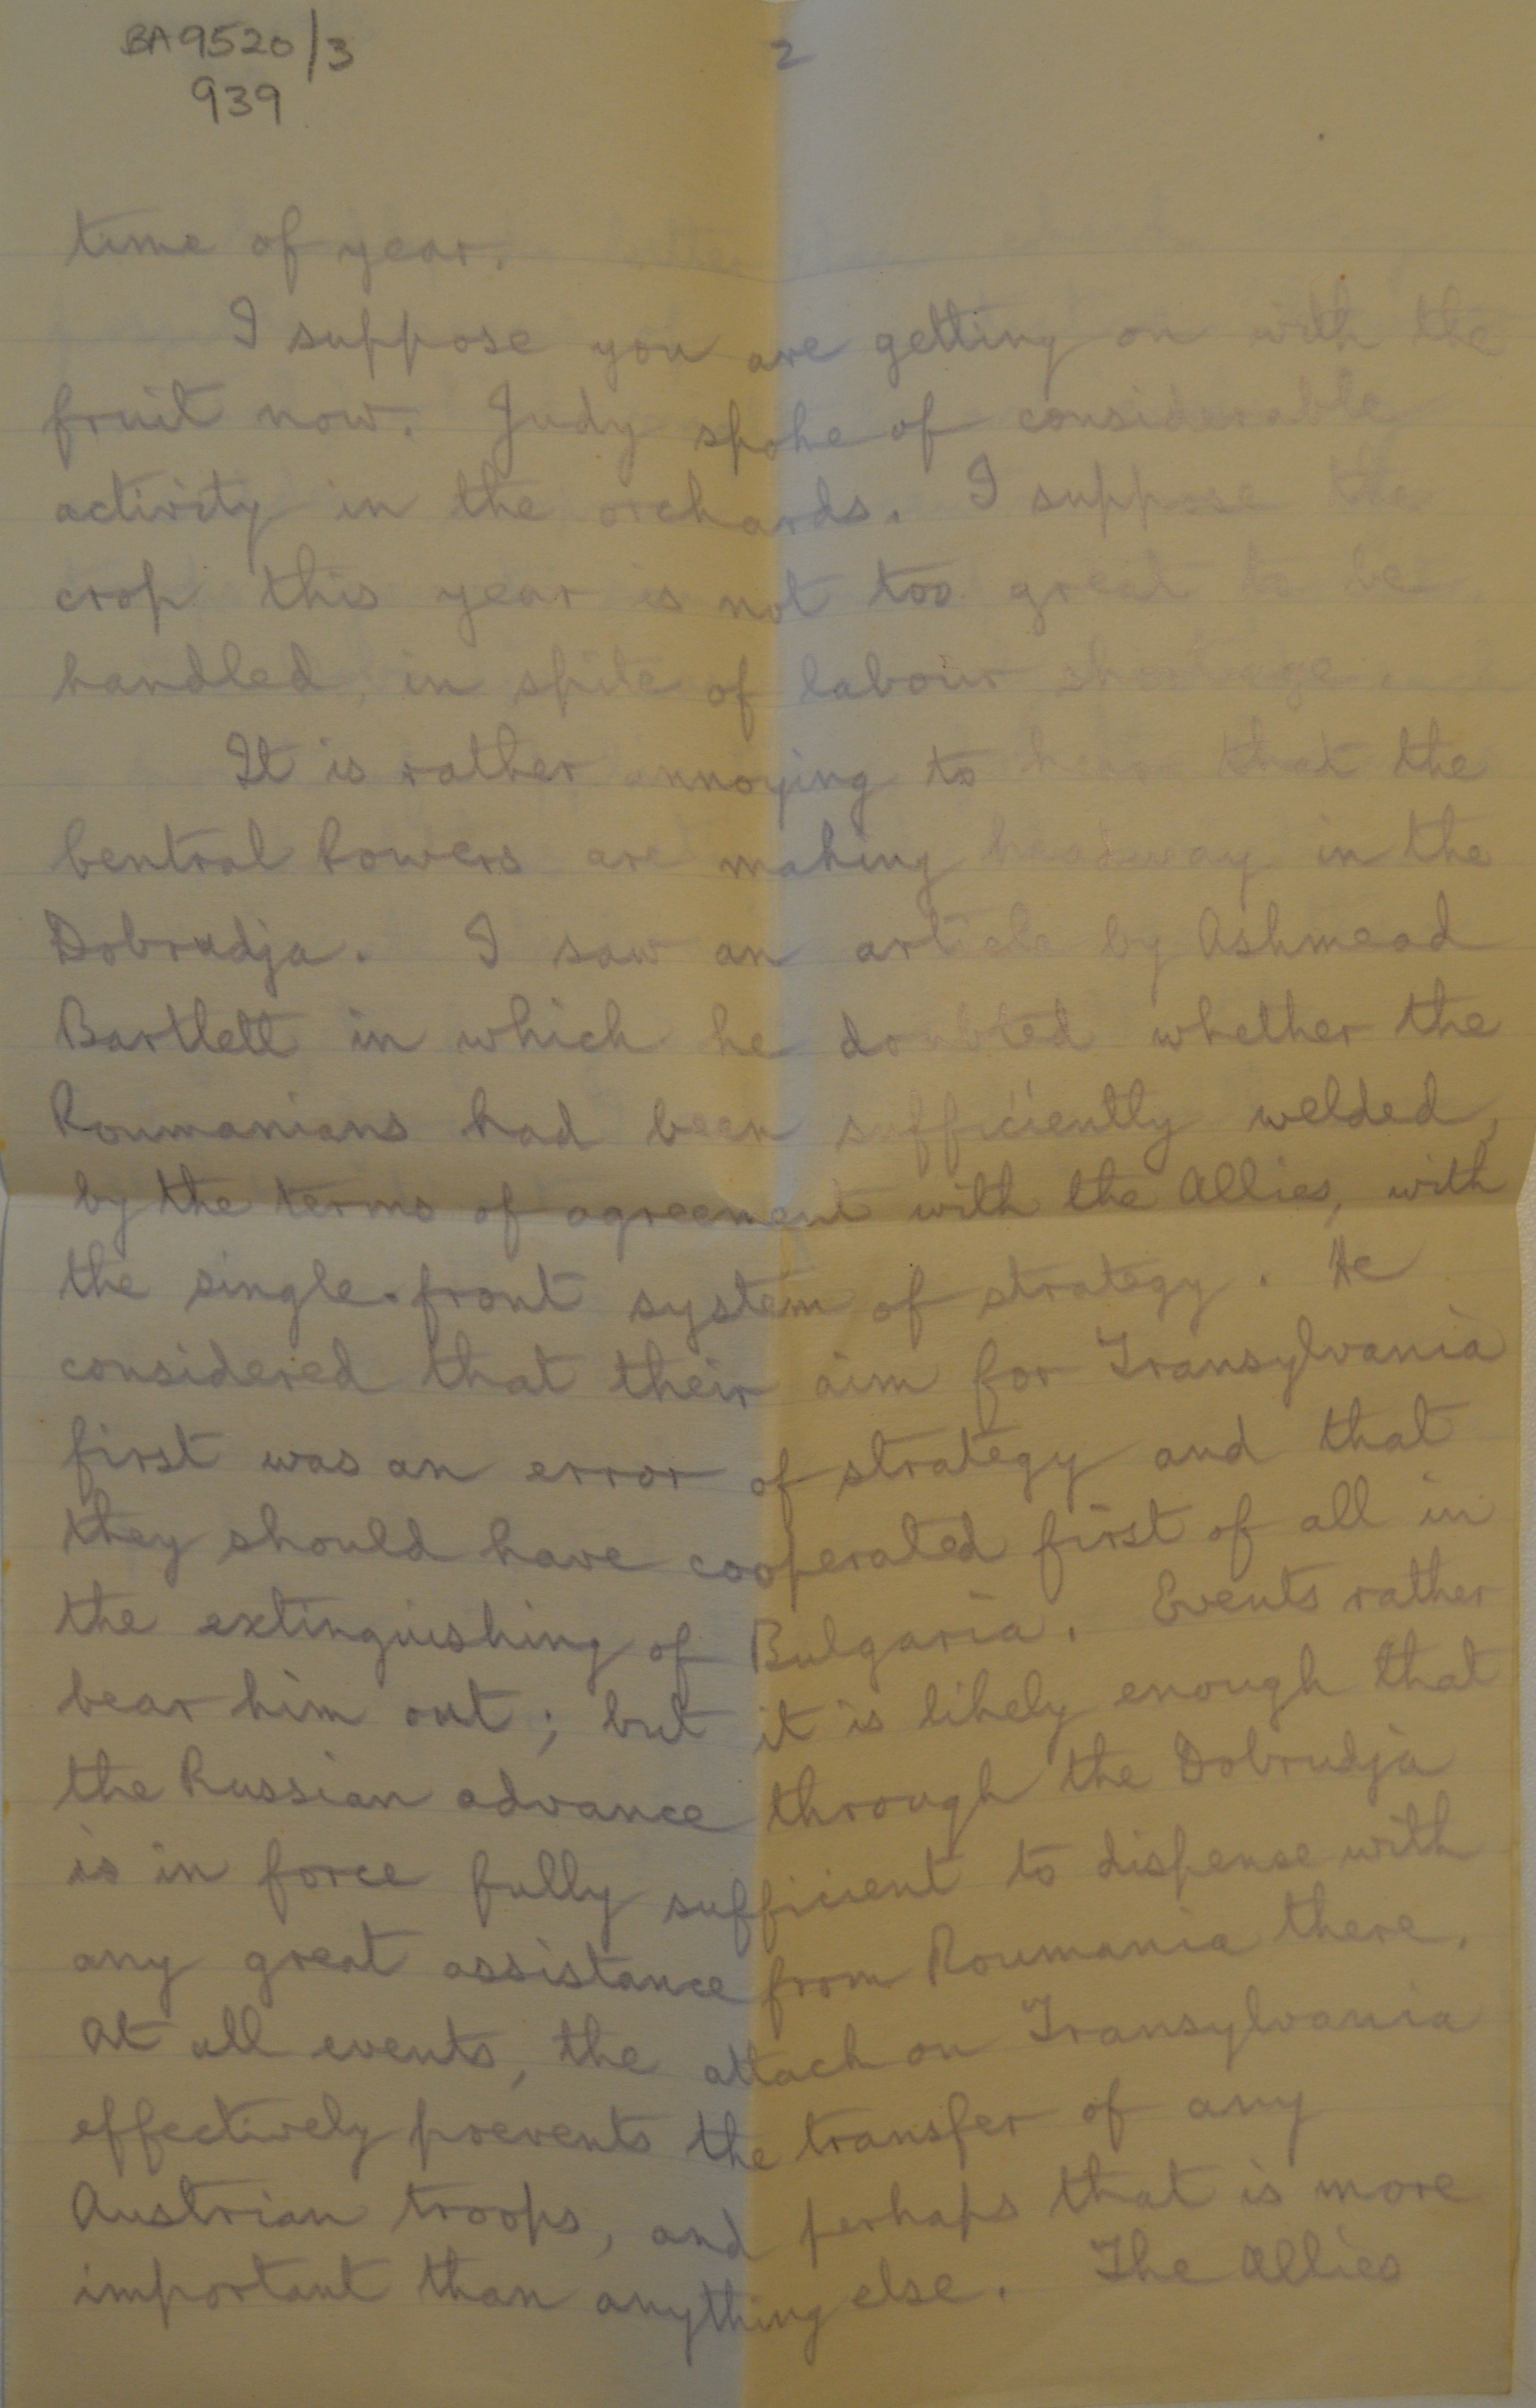 BA9520/3
939
2
time of year.
I suppose you are getting on with the
fruit now. Judy spoke of considerable
activity in the orchards. I suppose the
crop this year is not too great to be
handled, in spite of labour shortage.
It is rather annoying to hear that the
Central Powers are making headway in the
Dobrudja. I saw an article by Ashmead
Bartlett in which he doubted whether the
Roumanians had been sufficiently welded,
by the terms of agreement with the Allies, with
the single-front system of strategy. He
considered that their aim for Transylvania
first was an error of strategy and that
they should have cooperated first of all in
the extinguishing of Bulgaria. Events rather
bear him out; but it is likely enough that
the Russian advance through the Dobrudja
is in force fully sufficient to dispense with
any great assistance from Roumania there.
At all events, the attack on Transylvania
effectively prevents the transfer of any
Austrian troops, and perhaps that is more
important than anything else. The Allies